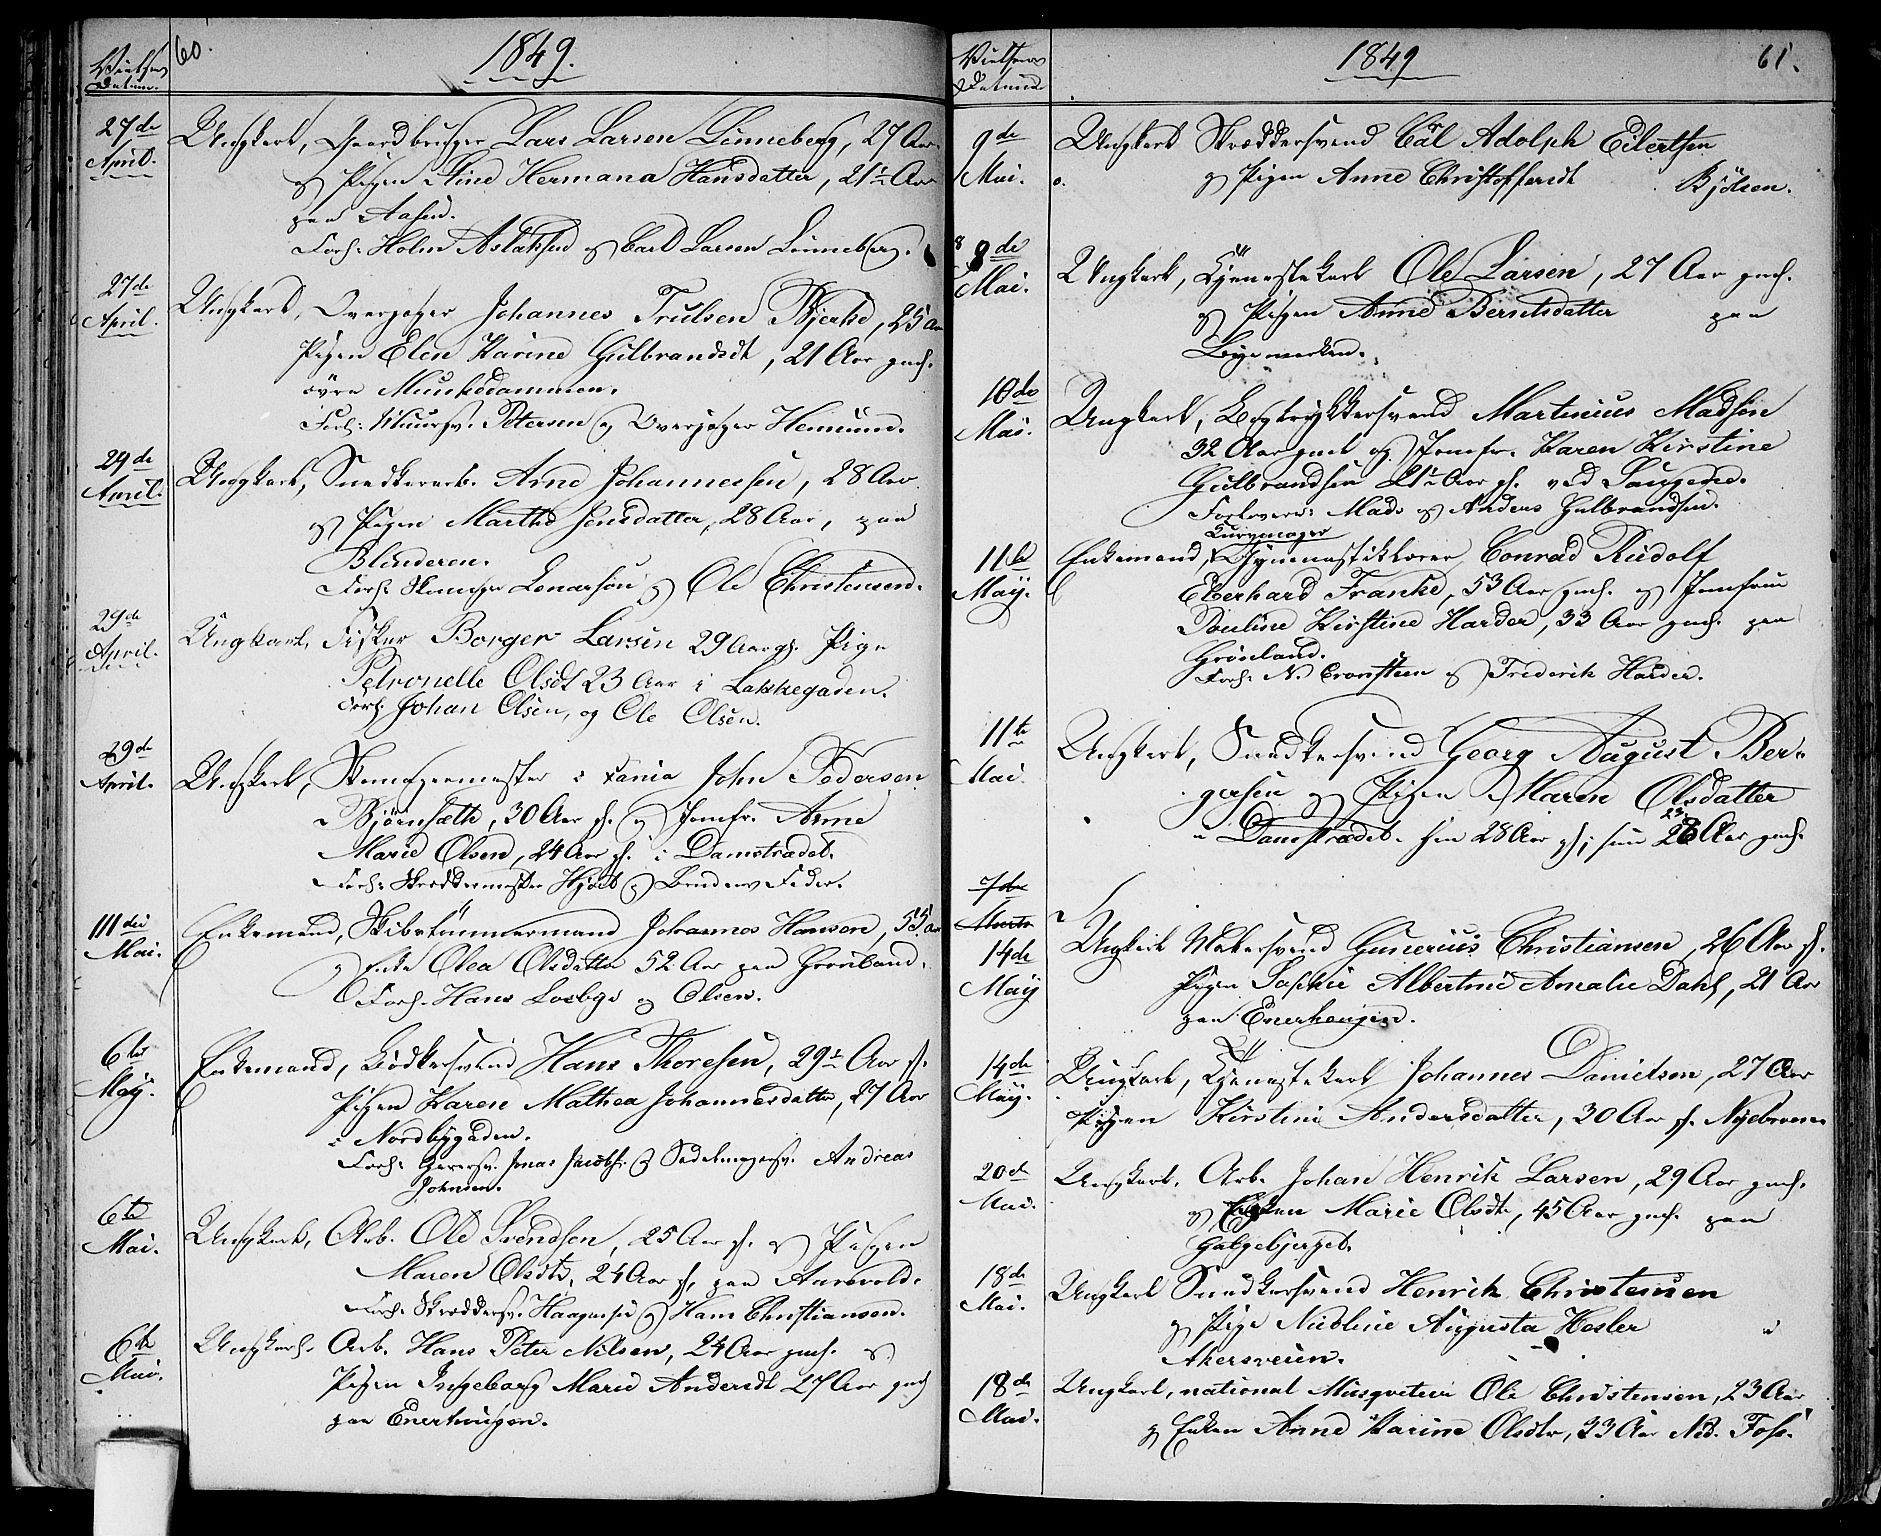 60.
1849.
Vielses
Datum.
27de April. Ungkarl, Gaardbruger Lars Larsen Linneberg, 27 Aar
og Pigen Stine Hermana Hansdatter, 21½ Aar
paa Aasen.
Forl: Holm Aslaksen og Carl Larsen Linneberg.
27de April. Ungkarl, Overjæger Johannes Trulsen Bjerke, 25 Aar
Pigen Elen Karine Gulbrandsdt, 21 Aar gml.
øvre Munkedammen.
Forl: Muursv. Petersen og Overjæger Hemmum.
29de April. Ungkarl, Snedkerarb. Arne Johannessen, 28 Aar
og Pigen Marthe Jensdatter, 28 Aar, paa
Blinderen.
Forl: Skomager Lenarson og Ole Christensen.
29de April. Ungkarl, Fisker Borger Larsen 29 Aar gl. Pige
Petronelle Olsdt 23 Aar i Lakkegaden.
Forl: Johan Olsen, og Ole Olsen.
29de April. Ungkarl, Skomagermester i Xania John Pedersen
Bjørnsæth, 30 Aar gl. og Jomfr. Anne
Marie Olsen, 24 Aar gl. i Damstrædet.
Forl: Skræddermester Hjort og Feder.
Mai. Enkemand, Skibstømmermand Johannes Hansen, 55 Aar
og Enke Olea Olsdatter 52 Aar paa Grønland.
Forl. Hans Losbye og Olsen.
6te May. Enkemand, Bødkersvend Hans Thoresen, 29½ Aar gl.
Pigen Karen Mathea Johannesdatter, 27 Aar
i Nordbygaden.
Forl: Garversv. Jonas Jacobs. og Sadelmagersv. Andreas
Johnsen.
6te Mai. Ungkarl, Arb. Ole Svendsen, 25 Aar gl. og Pigen
Maren Olsdtr, 24 Aar gl. paa Ankerold.
Forl: Skræddersv. Haagensen og Hans Christiansen.
6te Mai. Ungkarl. Arb. Hans Peter Nilsen, 24 Aar gml. og
Pigen Ingeborg Marie Andersdt 27 Aar gml
paa Enerhaugen.
61.
1849
Vielsens
Datum
9de Mai. Ungkarl Skræddersvend Carl Adolph Eilertsen
og Pigen Anne Christoffersdt Bjølsen.
8de Mai. Ungkarl, Tjenestekarl Ole Larsen, 27 Aar gml.
og Pigen Anne Berntsdatter paa
Bymarken.
10de Mai. Ungkarl, Bogtrykkersvend Martinius Madsen
32 Aar gml og Jomfr. Karen Kirstine
Gulbrandsen 21½ Aar gl. ved Saugene.
Forlovere: Mads og Anders Gulbrandsen.
Kurvmager
11te May. Enkemand, Gymnastiklærer Conrad Rudolf
Eberhard Franke, 53 Aar gml. og Jomfrue
Pouline Kirstine Harder, 33 Aar gml. paa
Grønland.
Forl: N. Cronsteen og Frederik Harder.
11te Mai. Ungkarl, Snedkersvend Georg August Ber-
gersen og Pigen Maren Olsdatter
Damstrædet. han 28 Aar gl; hun 23 Aar gml.
7de
Marts
14de May Ungkarl Malersvend Gunerius Christiansen, 26 Aar gl.
Pigen Sophie Albertine Amalie Dahl, 21 Aar
paa Enerhaugen.
14de May. Ungkarl, Tjenestekarl Johannes Danielsen, 27 Aar
Pigen Kirstine Andersdatter, 30 Aar gl. Nyebroen
20de Mai. Ungkarl. Arb. Johan Henrik Larsen, 29 Aar gml.
og Enken Marie Olsdt, 45 Aar gml. paa
Galgebjerget.
18de Mai. Ungkarl Snedkersvend Henrik Christensen
og Pige Nicoline Augusta Hesler
Akersveien.
18de Mai. Ungkarl, national Musqueteer Ole Christensen, 23 Aar
og Enken Anne Karine Olsdtr, 33 Aar Ned. Foss.